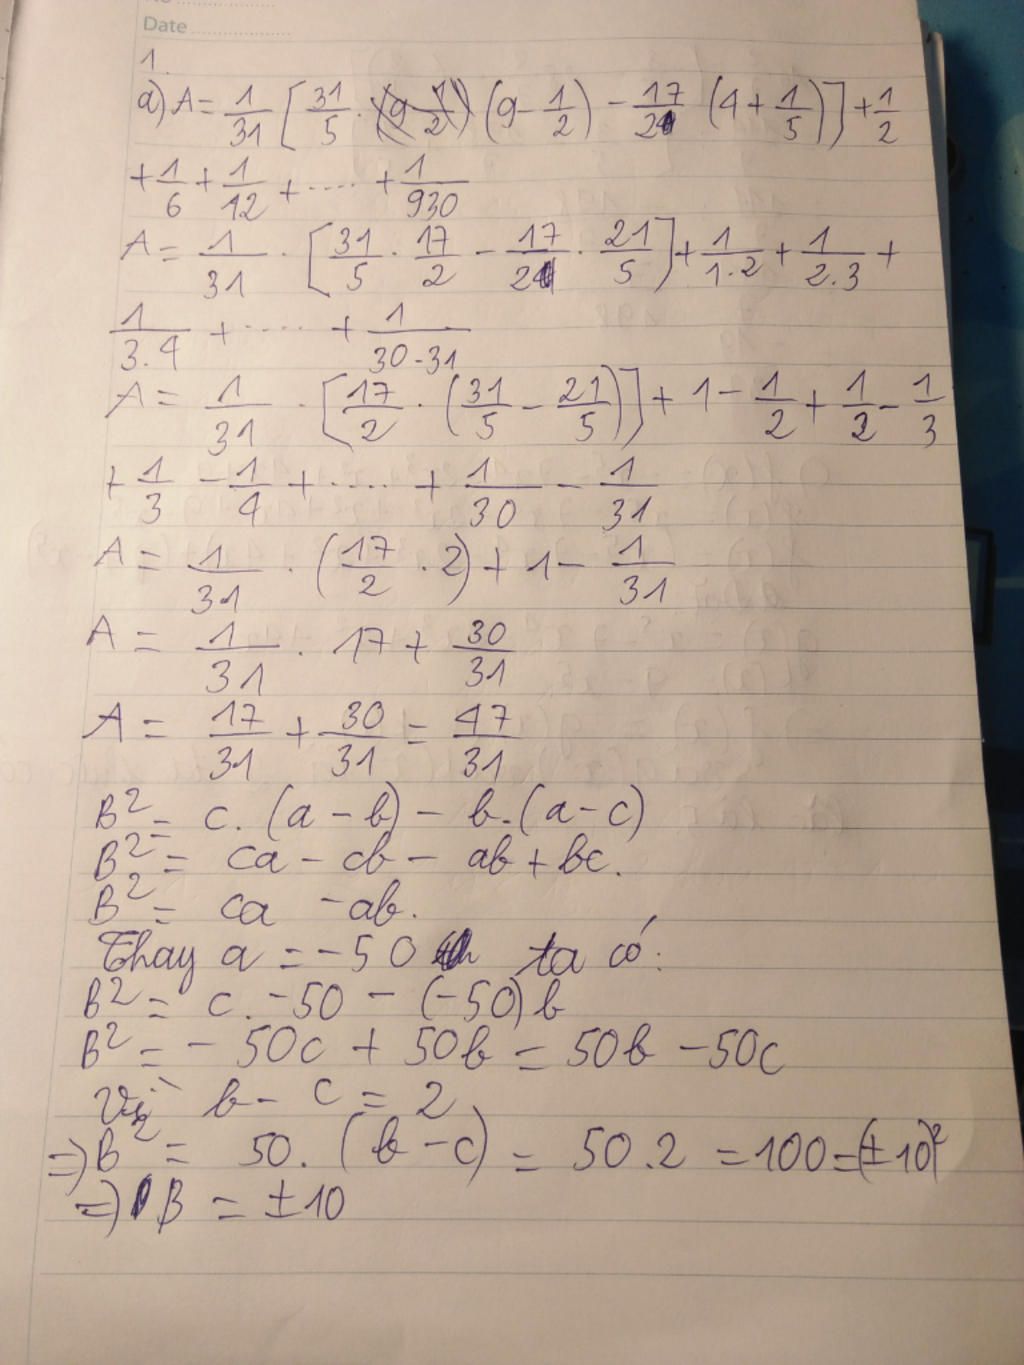 Date
1.
a) A = 1/31 [ 31/5 . (9 - 1/2) - 17/2 (4 + 1/5) ] + 1/2
+ 1/6 + 1/12 + ..... + 1/930
A = 1/31 . [ 31/5 . 17/2 - 17/2 . 21/5 ] + 1/1.2 + 1/2.3 +
1/3.4 + ..... + 1/30.31
A = 1/31 . [ 17/2 . ( 31/5 - 21/5 ) ] + 1 - 1/2 + 1/2 - 1/3
+ 1/3 - 1/4 + ..... + 1/30 - 1/31
A = 1/31 . ( 17/2 . 2 ) + 1 - 1/31
A = 1/31 . 17 + 30/31
A = 17/31 + 30/31 = 47/31
B² = c. (a - b) - b. (a - c)
B² = ca - cb - ab + bc.
B² = ca - ab.
Thay a = -50 ta có:
B² = c. -50 - (-50) b
B² = - 50c + 50b = 50b - 50c
Vì b - c = 2
=> B² = 50. (b - c) = 50.2 = 100 = (±10)²
=> B = ±10